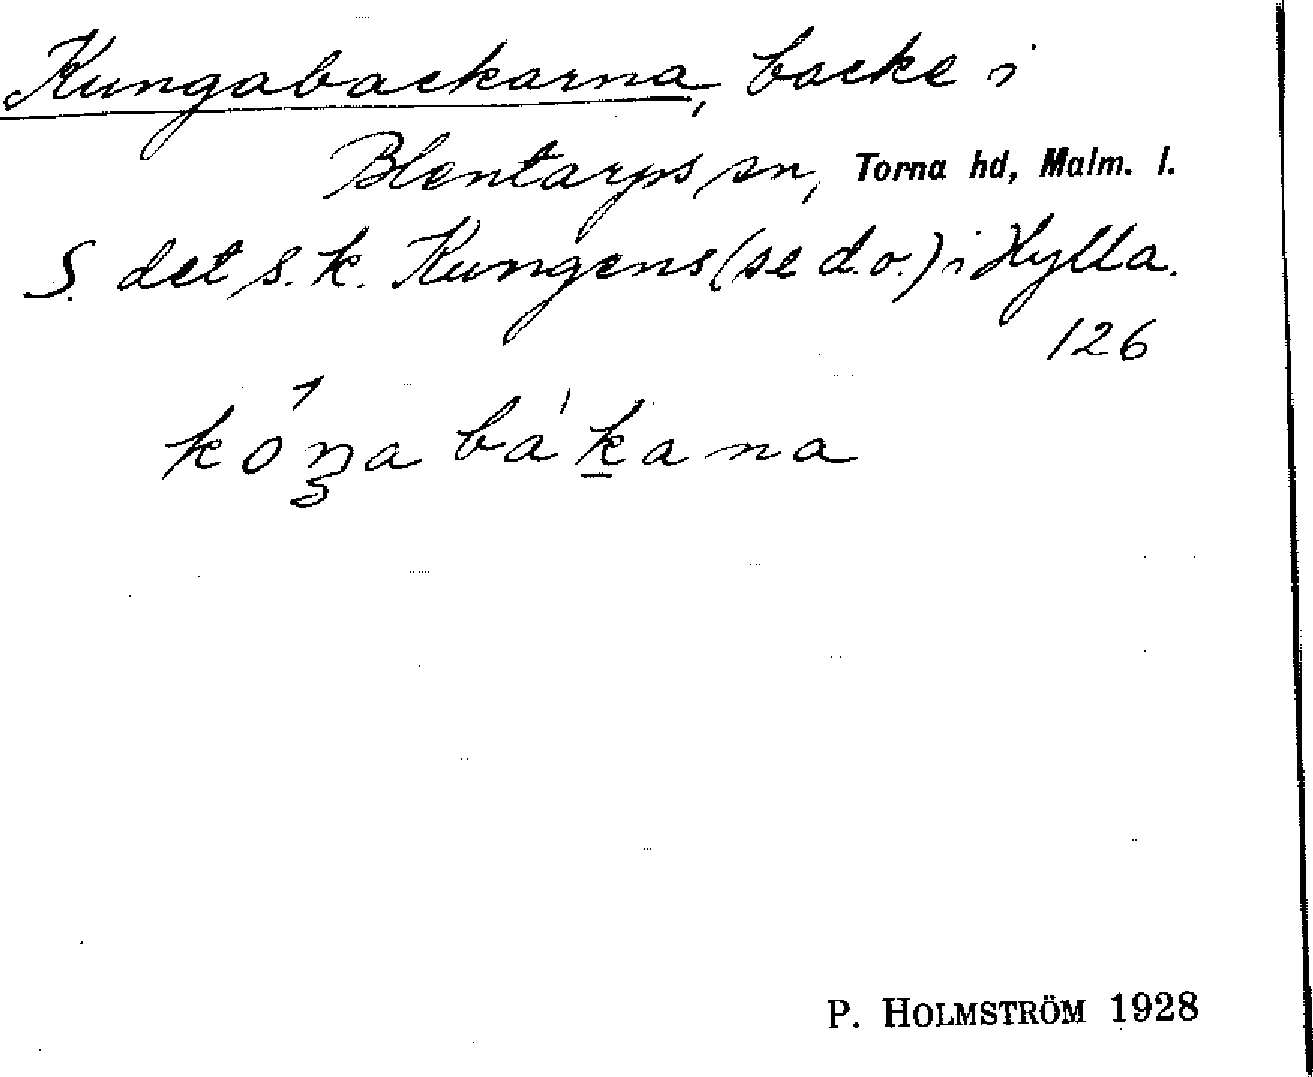 Kungabackarna, backe i
Blentarps sn, Torna hd, Malm. l.
S. det s.k. Kungens (se d.o.) i Hylla.
126
kó̗ŋa bákana
P. HOLMSTRÖM 1928